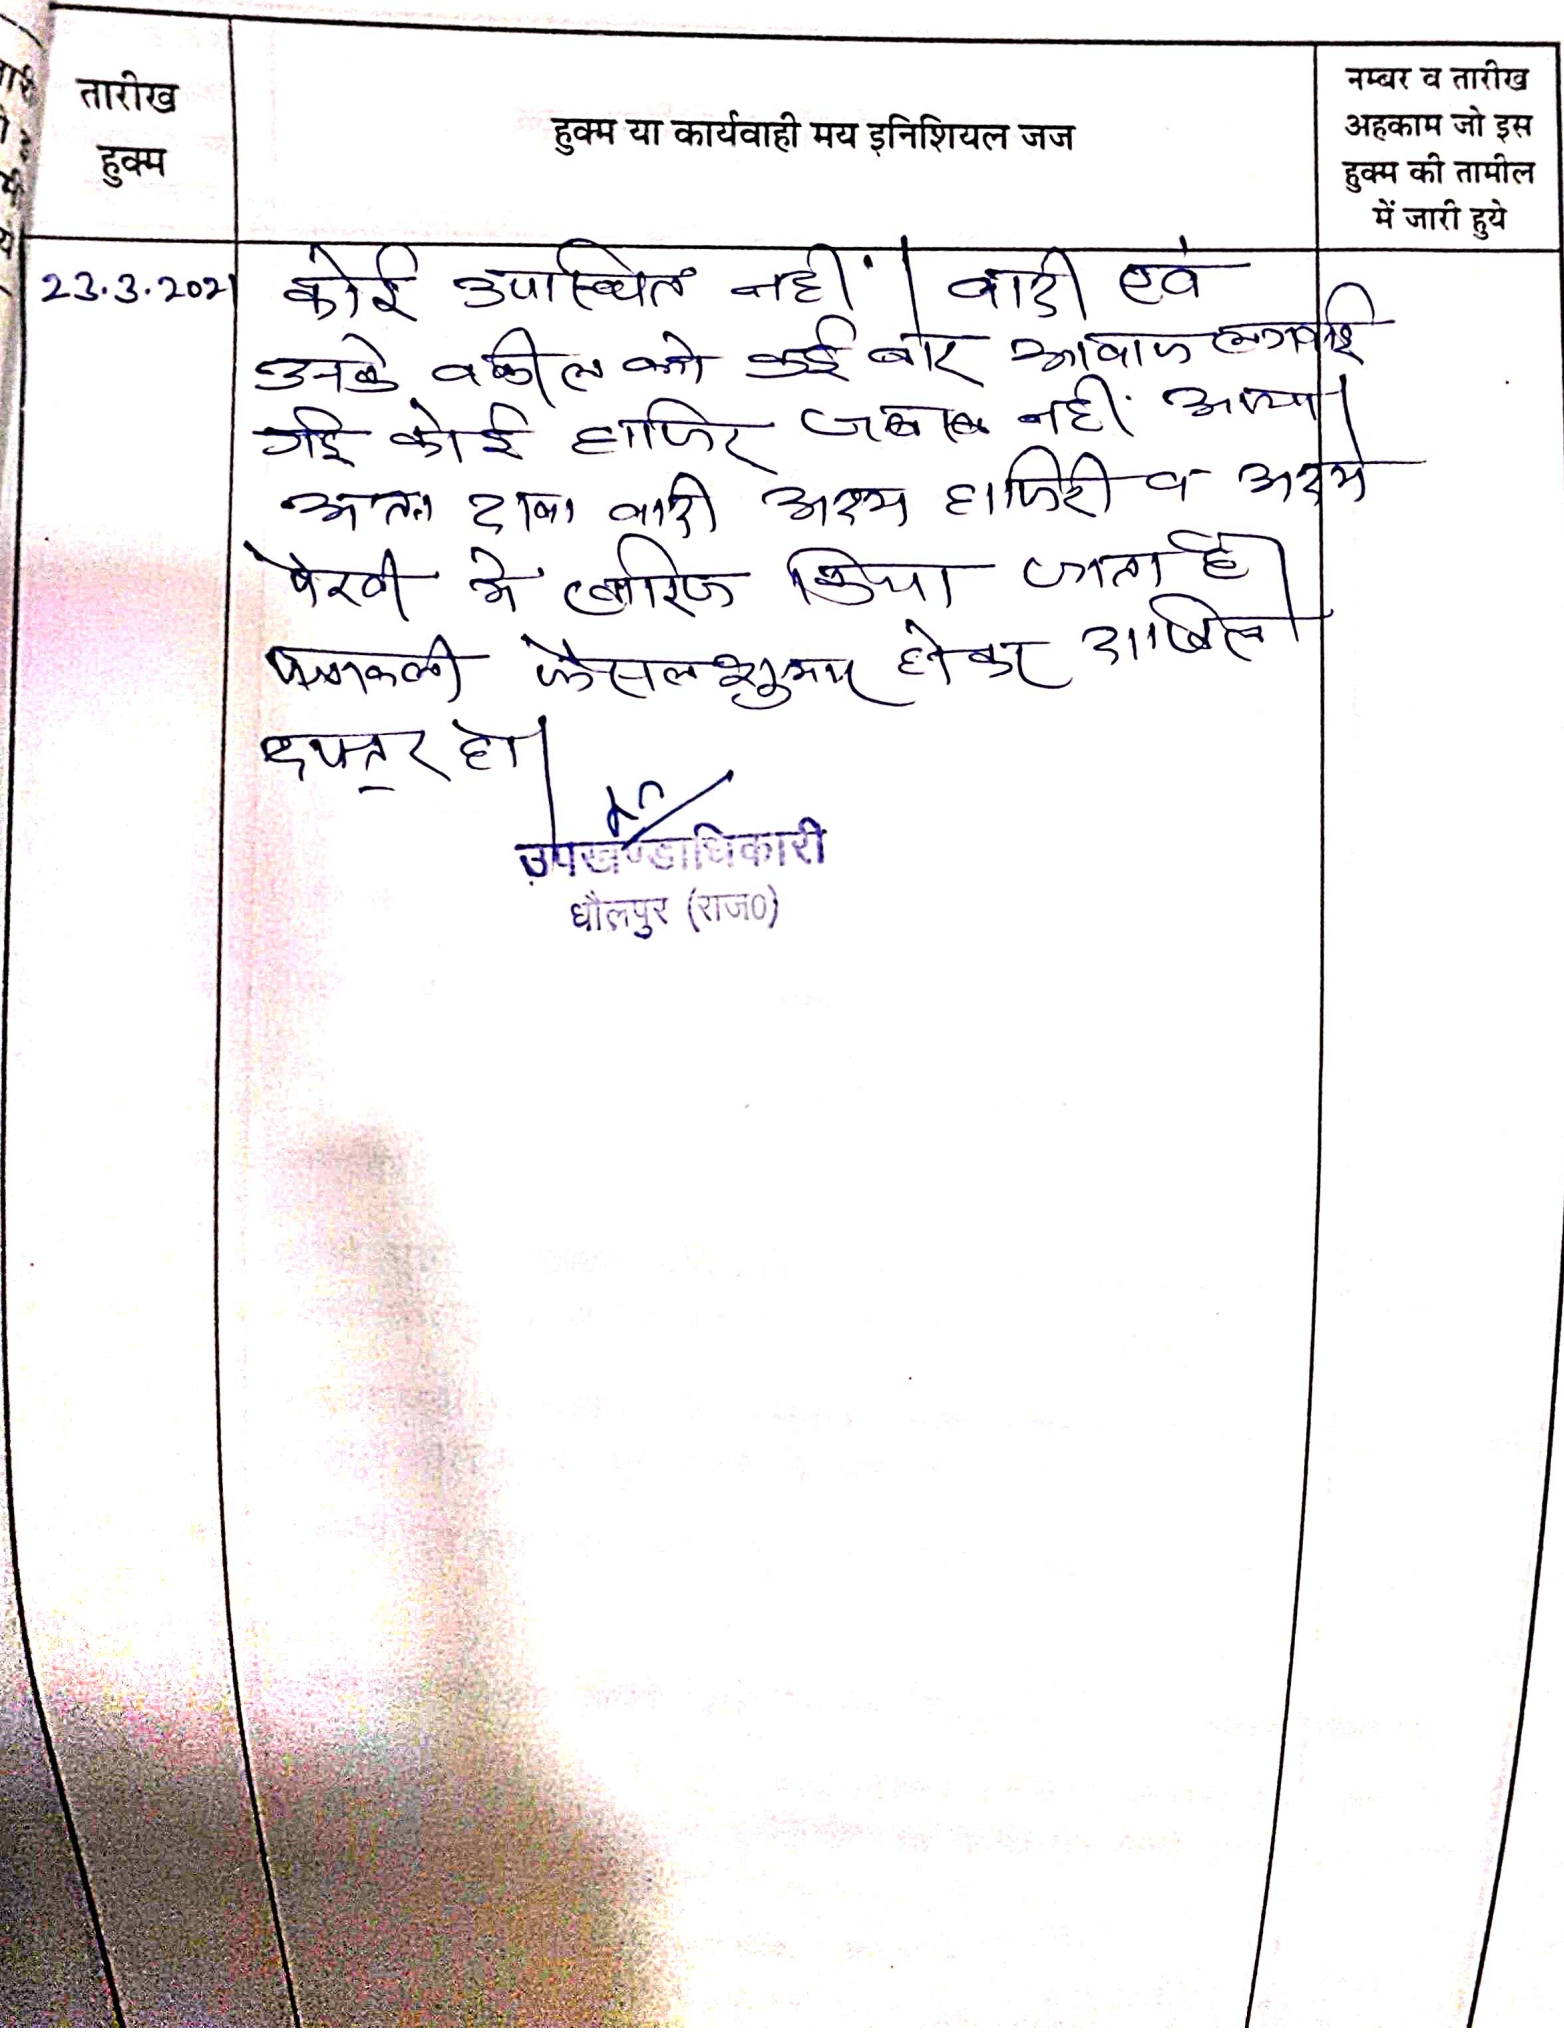 तारीख
हुक्म
हुक्म या कार्यवाही मय इनिशियल जज
नम्बर व तारीख
अहकाम जो इस
हुक्म की तामील
में जारी हुये
23.3.2021
कोई उपस्थित नहीं। वादी एवं
उनके वकील को कई बार आवाज लगवाई
गई कोई हाजिर नहीं आया।
अतः दावा वादी अदम हाजिरी व अदम
पेरवी में खारिज किया जाता है।
पत्रावली फैसल शुमार होकर दाखिल
दफ्तर हो।
उपखण्डाधिकारी
धौलपुर (राज०)